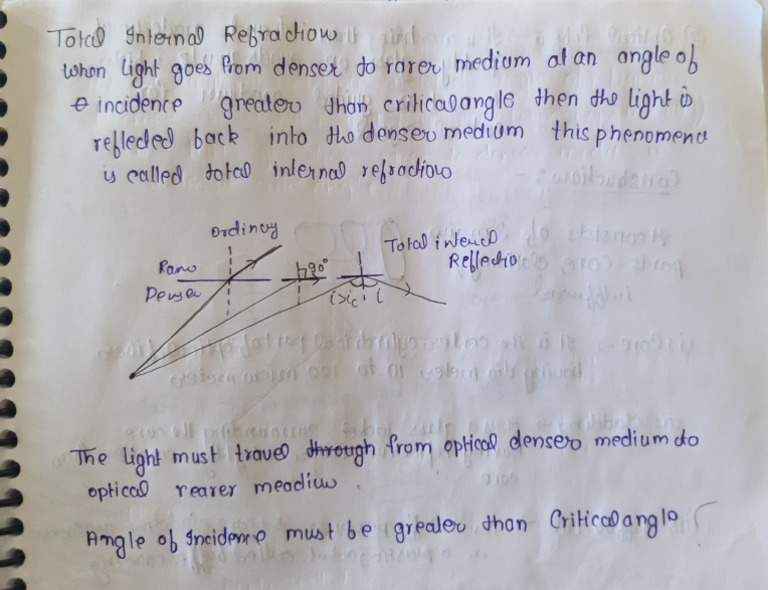 Total Internal Refraction
when light goes from denser to rarer medium at an angle of
incidence greater than critical angle then the light is
reflected back into the denser medium this phenomena
is called total internal refraction
ordinary
Rare
Denser
90°
Total internal
Reflectio
i>ic i
The light must travel through from optical denser medium to
optical rearer meadium
Angle of Incidence must be greater than Critical angle